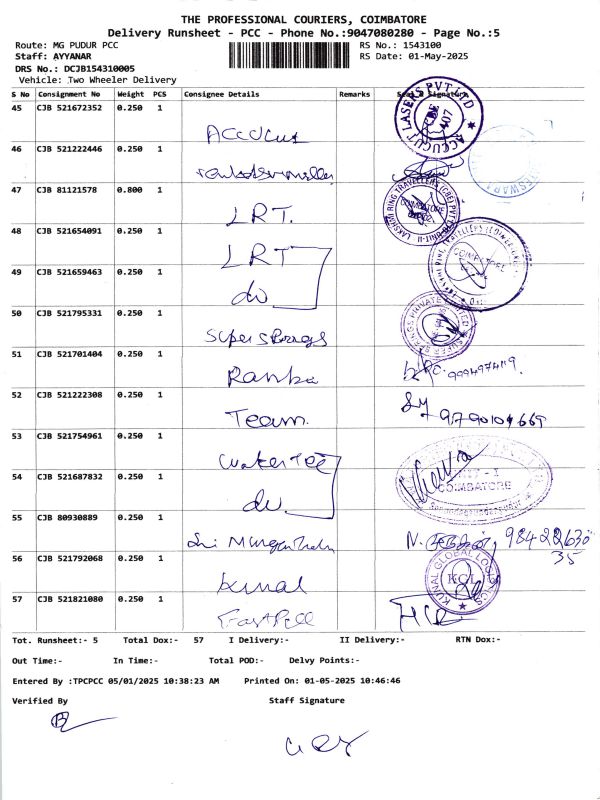 THE PROFESSIONAL COURIERS, COIMBATORE
Delivery Runsheet - PCC - Phone No.:9047080280 - Page No.:5
Route: MG PUDUR PCC
RS No.: 1543100
Staff: AYYANAR
RS Date: 01-May-2025
DRS No.: DCJB154310005
Vehicle: Two Wheeler Delivery
S No Consignment No Weight PCS Consignee Details Remarks Seal & Signature
45 CJB 521672352 0.250 1
Accucut
46 CJB 521222446 0.250 1
47 CJB 81121578 0.800 1
LRT.
48 CJB 521654091 0.250 1
LRT
49 CJB 521659463 0.250 1
do
50 CJB 521795331 0.250 1
Super Springs
51 CJB 521701404 0.250 1
Ranba
52 CJB 521222308 0.250 1
Team.
9790104669
53 CJB 521754961 0.250 1
Water Tec
54 CJB 521687832 0.250 1
do
COIMBATORE
55 CJB 80930889 0.250 1
Sri Murgan
9842263035
56 CJB 521792068 0.250 1
Kunal
KUNAL GLOBAL LOGISTICS
KGL
57 CJB 521821080 0.250 1
Tot. Runsheet:- 5 Total Dox:- 57 I Delivery:- II Delivery:- RTN Dox:-
Out Time:- In Time:- Total POD:- Delvy Points:-
Entered By :TPCPCC 05/01/2025 10:38:23 AM Printed On: 01-05-2025 10:46:46
Verified By Staff Signature